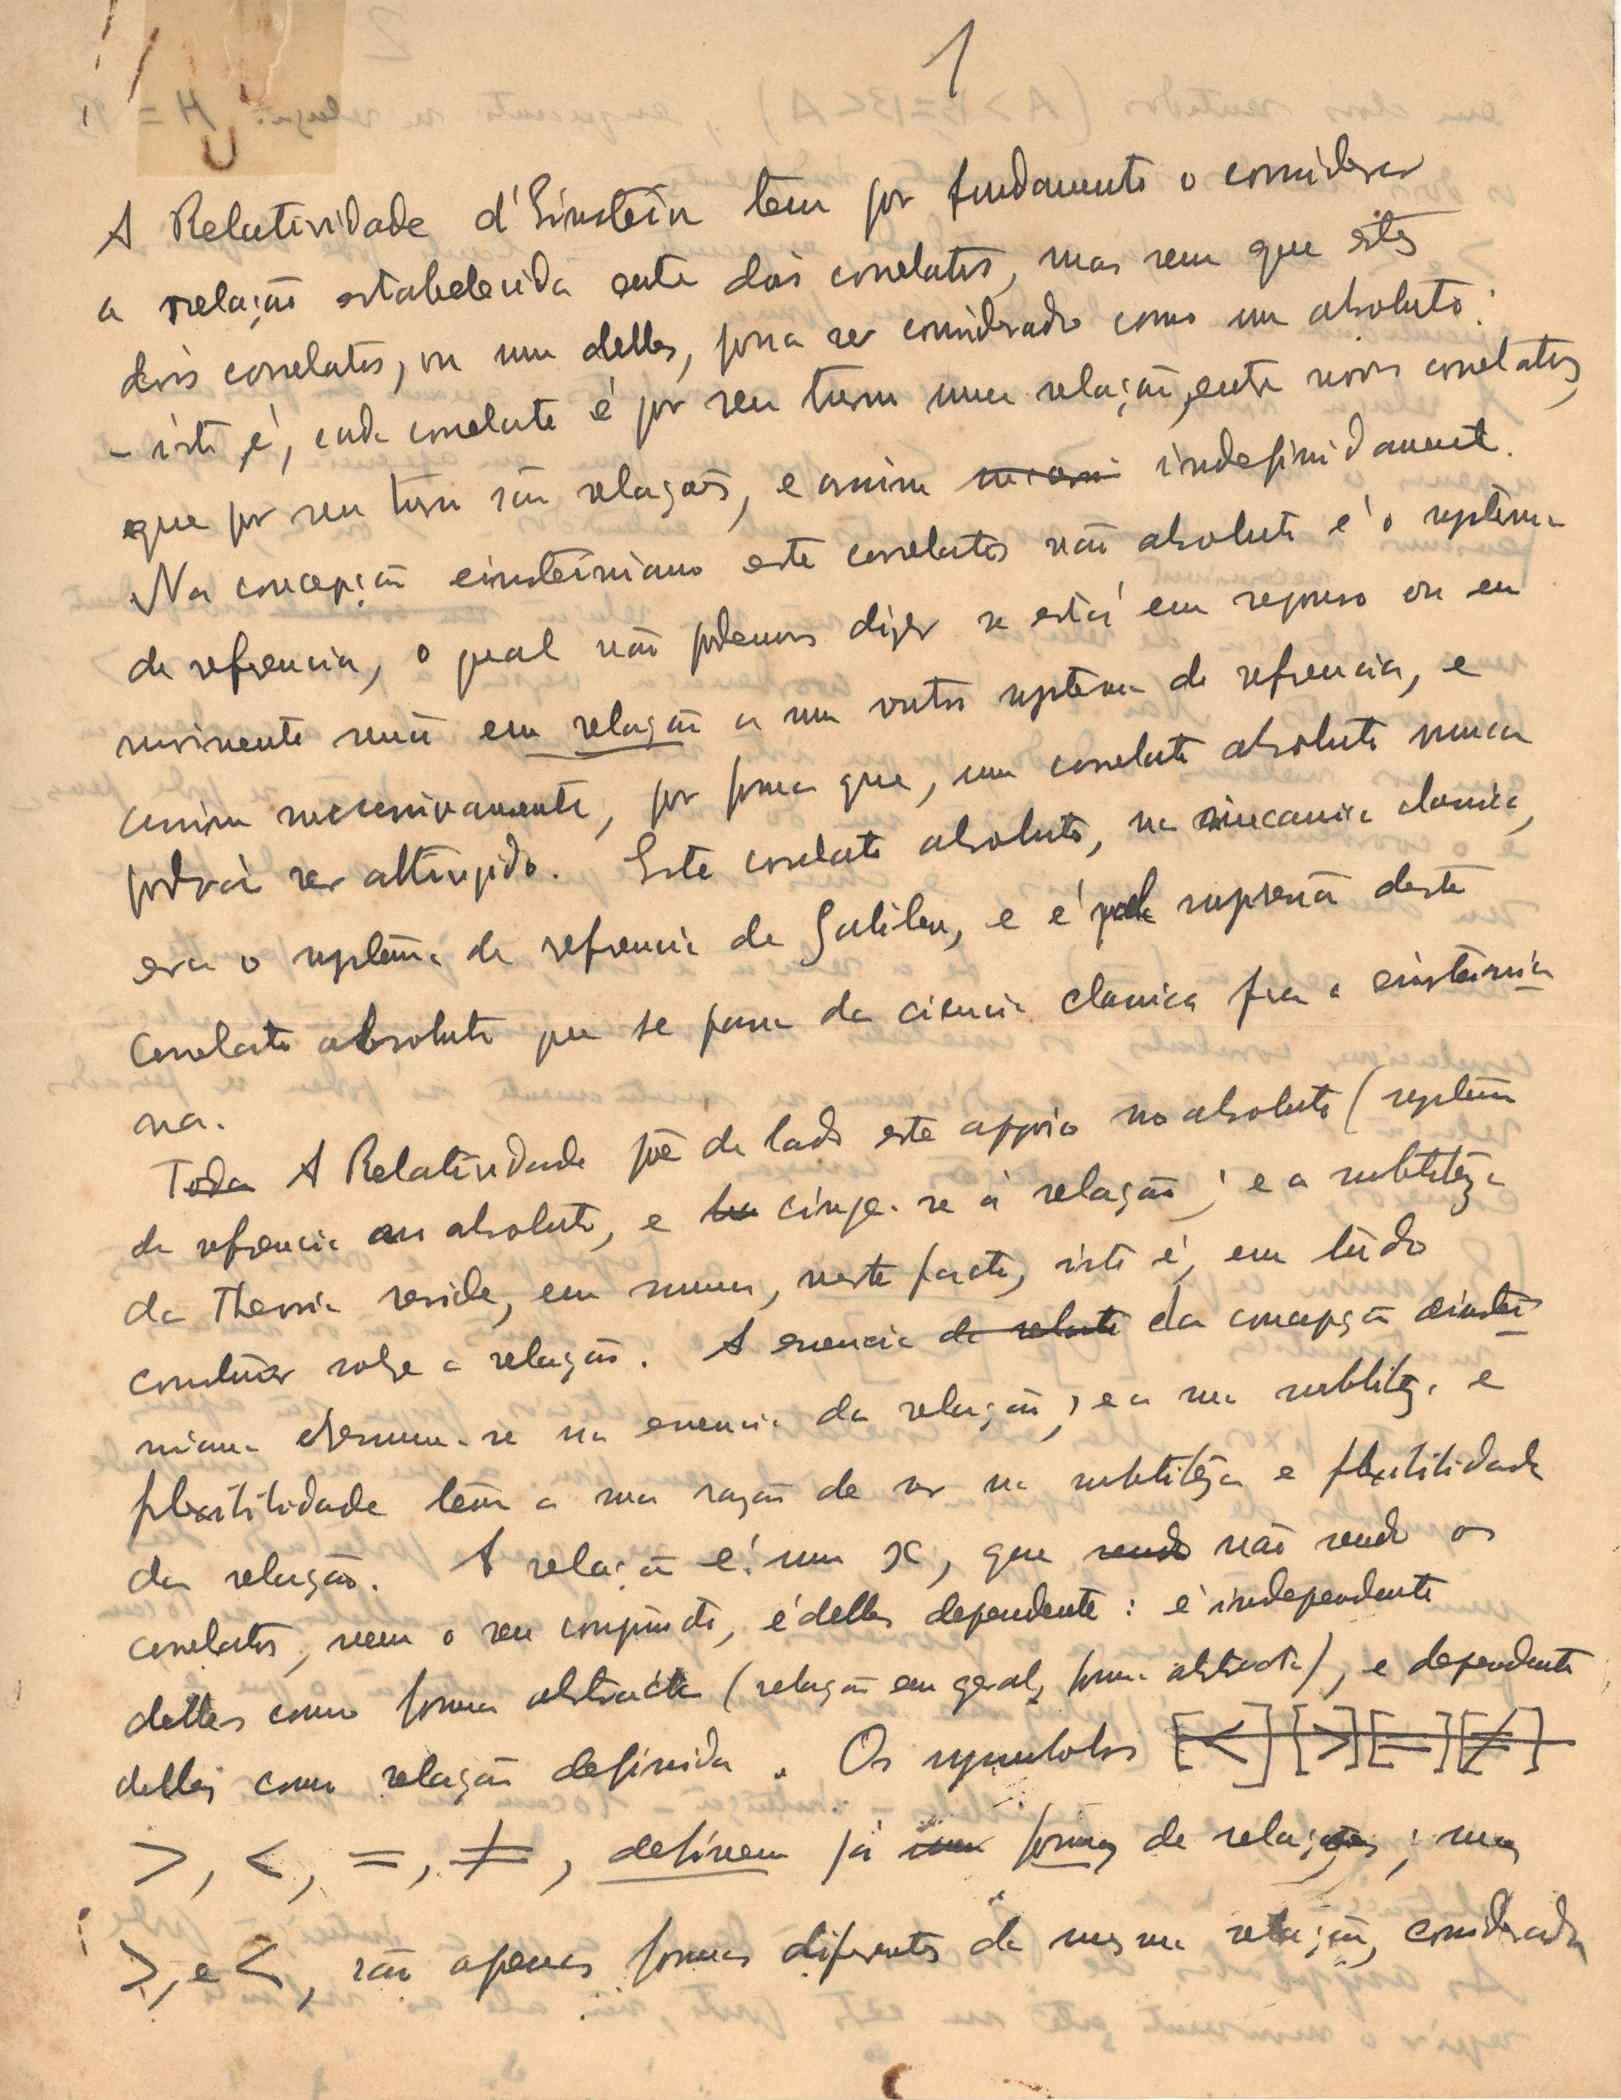 1
A Relatividade d'Einstein tem por fundamento o considerar
a relação estabelecida entre dois correlatos, mas sem que estes
dois correlatos, ou um delles, possa ser considerado como um absoluto:
– isto é, cada correlato é por seu turno uma relação, entre novos correlatos,
que por seu turno são relações, e assim indefinidamente.
Na concepção einsteiniana este correlato não absoluto é o systema
de refrencia, o qual não podemos dizer se está em repouso ou em
movimento senão em relação a um outro systema de refrencia, e
assim successivamente, por forma que, um correlato absoluto nunca
podrá ser attingido. Este correlato absoluto, na mecanica classica,
era o systema de refrencia de Galileu, e é pela supressão deste
correlato absoluto que se passa da ciencia classica para a einsteinia
na.
Toda A Relatividade põe de lado este appoio no absoluto (systema
de refrencia absoluto, e cinge-se á relação; e a subtileza
da Theoria reside, em summa, neste facto, isto é, em tudo
construir sobre a relação. A essencia de relato da concepção einstei
niana resume-se na essencia da relação; e a sua subtileza e
flexibilidade têm a sua razão de ser na subtileza e flexibilidade
da relação. A relação é um x, que sendo não sendo os
correlatos, nem o seu conjuncto, é delles dependente: é independente
delles como forma abstracta (relação em geral, forma abstracta), e dependente
delles como relação definida. Os symbolos [<] [>] [=] [≠]
>, <, =, ≠, definem já uma formas de relações; mas
>, e <, são apenas formas diferentes da mesma relação, considerada